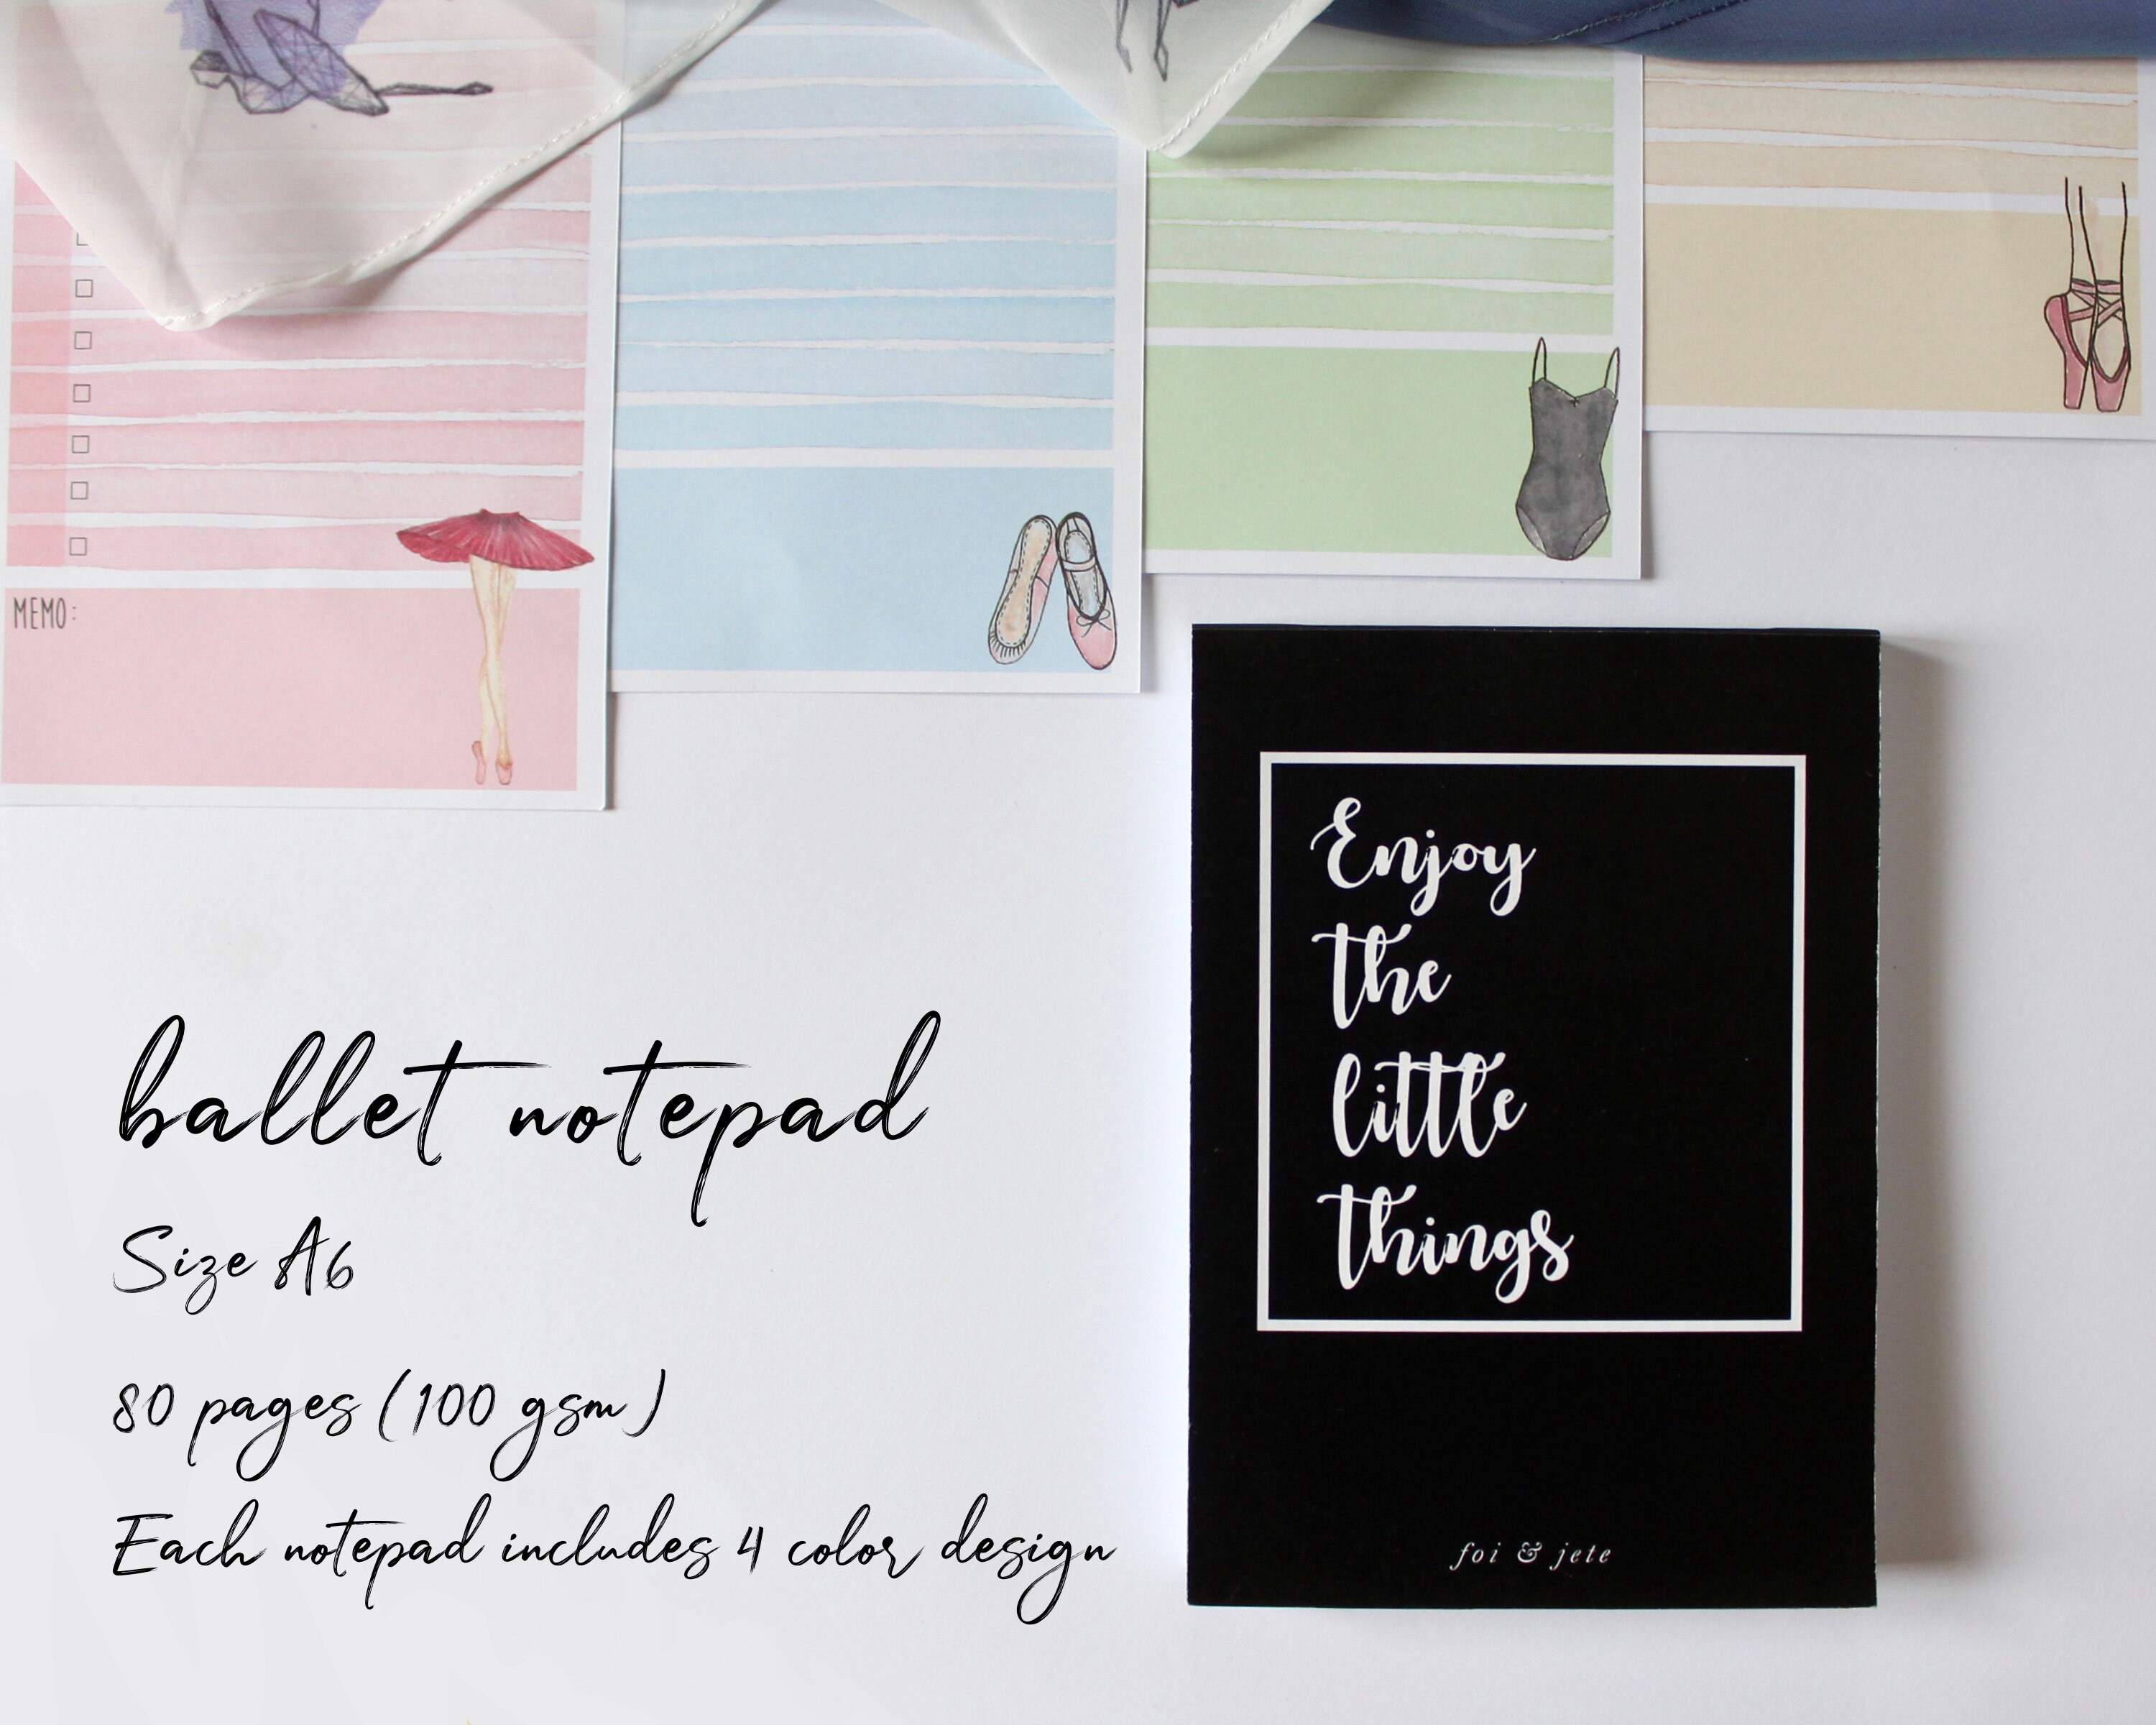 MEMO:
Enjoy
the
little
things
foi & jete
ballet notepad
Size A6
80 pages (100 gsm)
Each notepad includes 4 color design